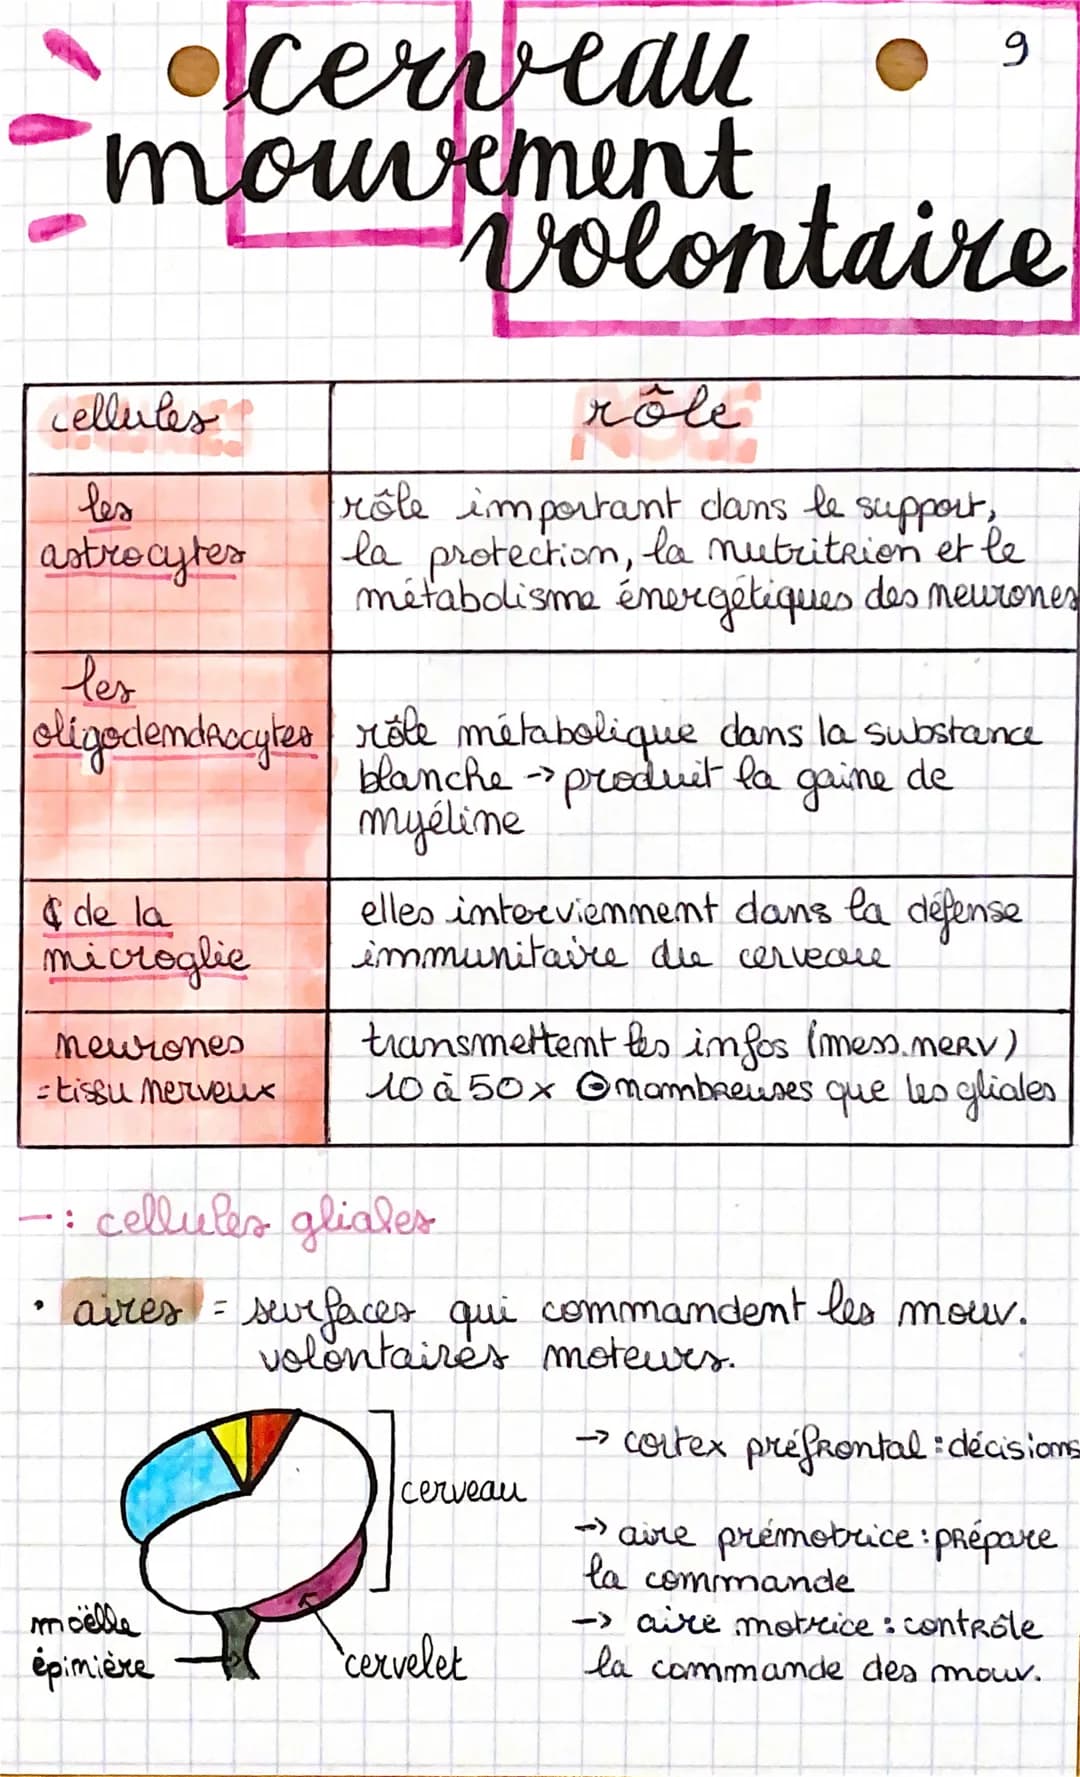 cerveau
9
mouvement
volontaire
cellules
rôle
les
astrocytes
rôle important dans le support,
la protection, la nutritrion et le
métabolisme énergétiques des neurones
les
oligodendrocytes
rôle métabolique dans la substance
blanche -> produit la gaine de
myéline
₵ de la
microglie
elles interviennent dans la défense
immunitaire du cerveau
neurones
= tissu nerveux
transmettent les infos (mess. nerv)
10 à 50x ⊖ nombreuses que les gliales
— : cellules gliales
• aires = surfaces qui commandent les mouv.
volontaires moteurs.
cerveau
moëlle
épinière
cervelet
-> cortex préfrontal : décisions
-> aire prémotrice : prépare
la commande
-> aire motrice : contrôle
la commande des mouv.